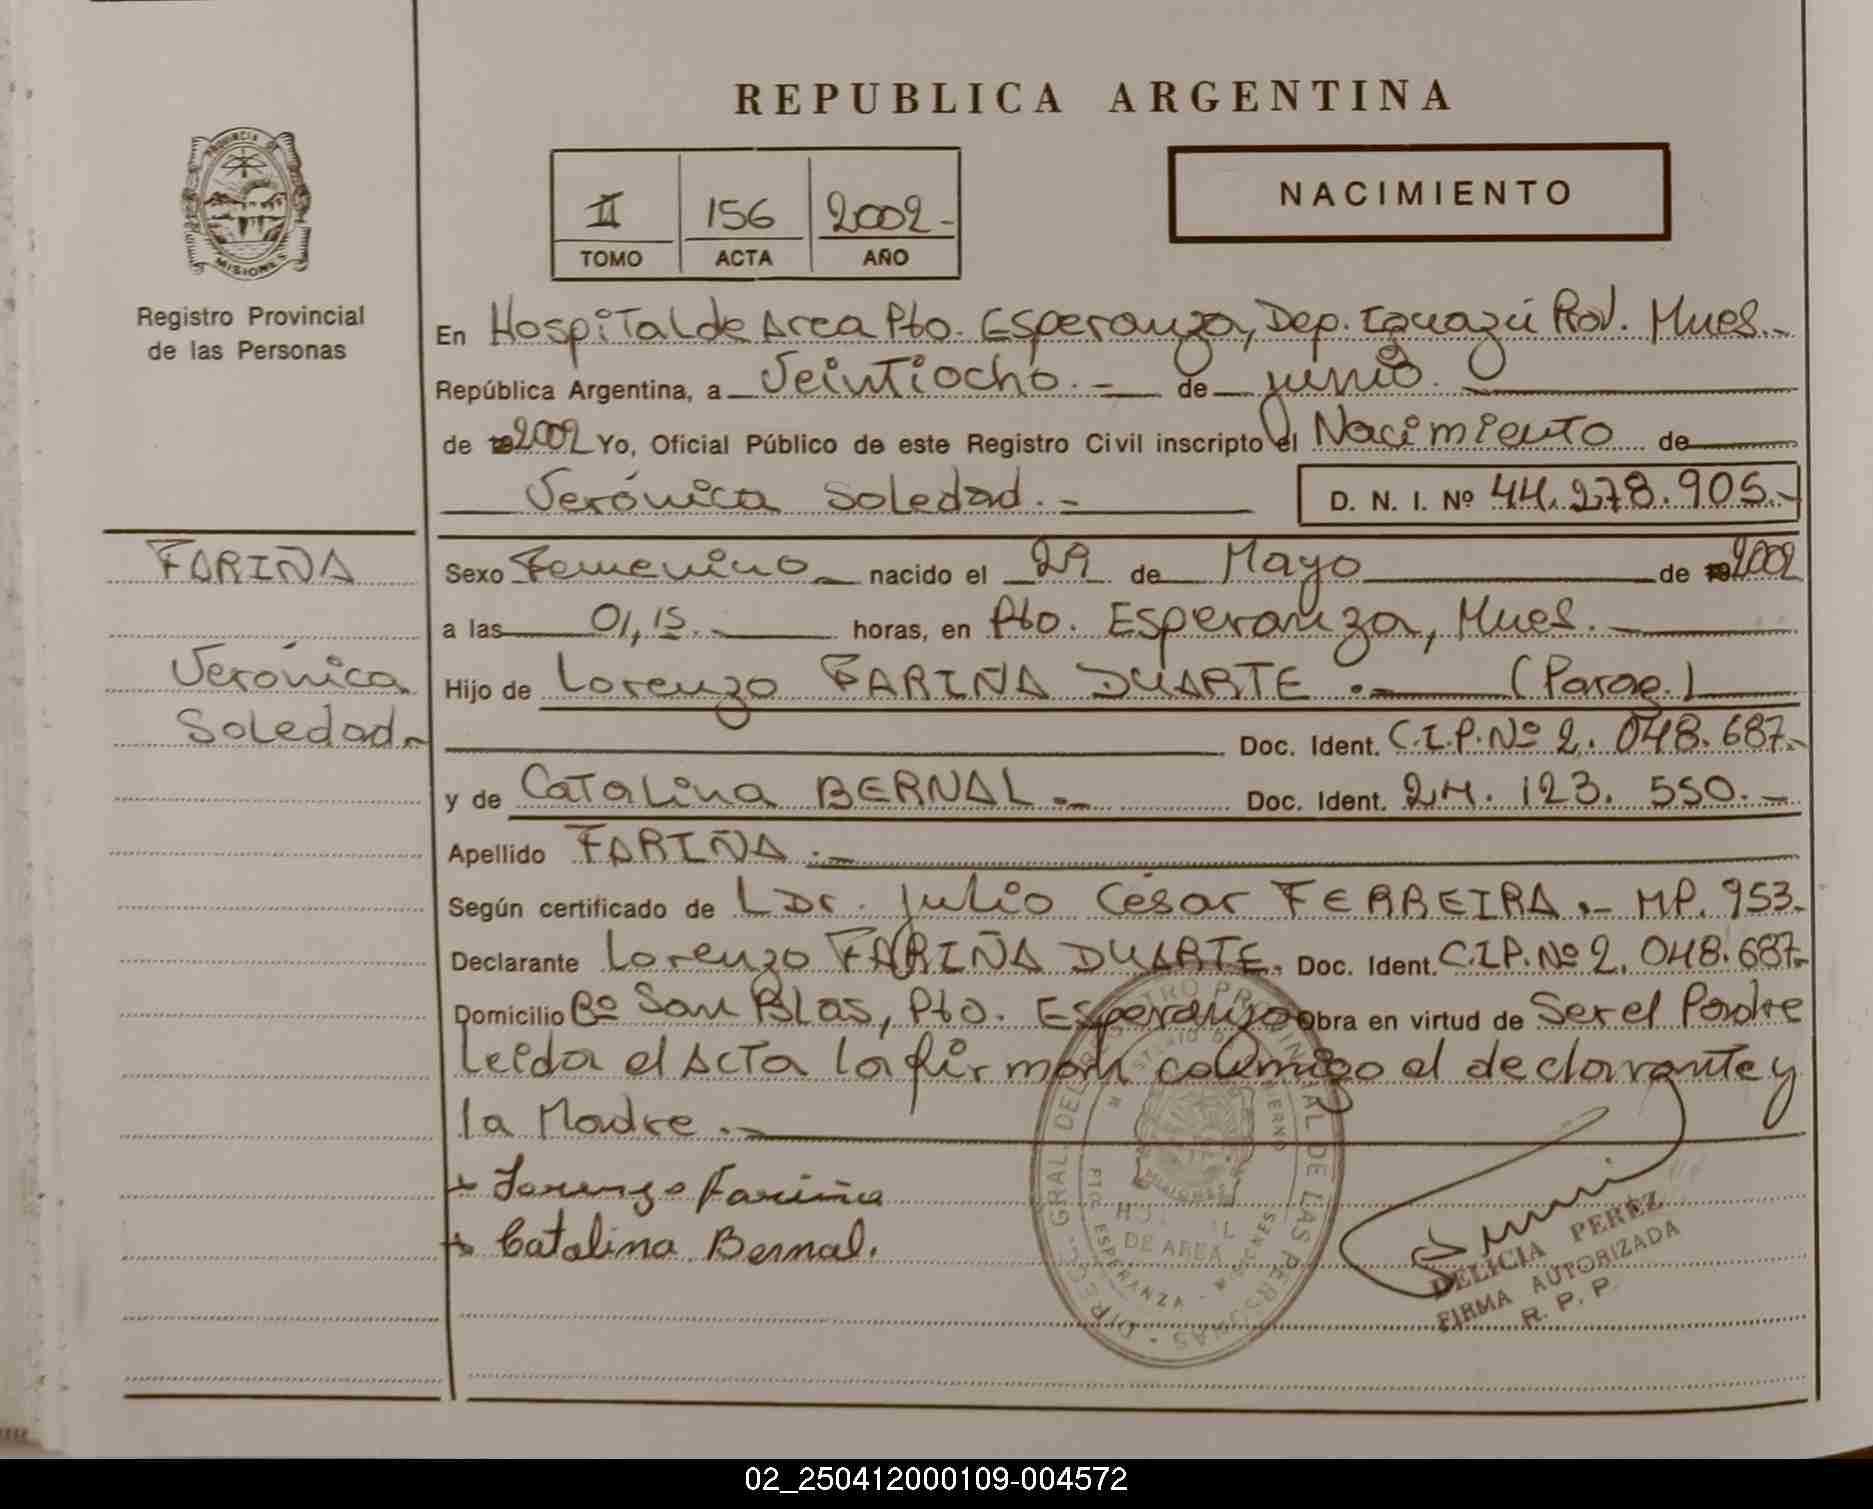 REPUBLICA ARGENTINA
PROVINCIA DE
MISIONES
Registro Provincial
de las Personas
II 156 2002.-
TOMO ACTA AÑO
NACIMIENTO
En Hospital de Area Pto. Esperanza, Dep. Iguazú Prov. Mnes.-
República Argentina, a Veintiocho.- de junio.
de 2002 Yo, Oficial Público de este Registro Civil inscripto el Nacimiento de
Verónica Soledad.- D. N. I. Nº 44.278.905.-
FARIÑA
Verónica
Soledad.-
Sexo Femenino nacido el 29 de Mayo de 2002
a las 01,15.- horas, en Pto. Esperanza, Mnes.-
Hijo de Lorenzo FARIÑA DUARTE.- (Parag.)
Doc. Ident. C.I.P. Nº 2.048.687.-
y de Catalina BERNAL.- Doc. Ident. 24.123.550.-
Apellido FARIÑA.-
Según certificado de Dr. Julio César FERREIRA.- MP. 953.-
Declarante Lorenzo FARIÑA DUARTE. Doc. Ident. C.I.P. Nº 2.048.687.-
Domicilio Bº San Blas, Pto. Esperanza Obra en virtud de Ser el Padre
leida el Acta la firman conmigo el declarante y
la Madre.-
+ Lorenzo Fariña
+ Catalina Bernal.
DIREC. GRAL. DEL REGISTRO PROVINCIAL DE LAS PERSONAS
DE AREA
PTO. ESPERANZA - MISIONES
DELICIA PEREZ
FIRMA AUTORIZADA
R. P. P.
02_250412000109-004572